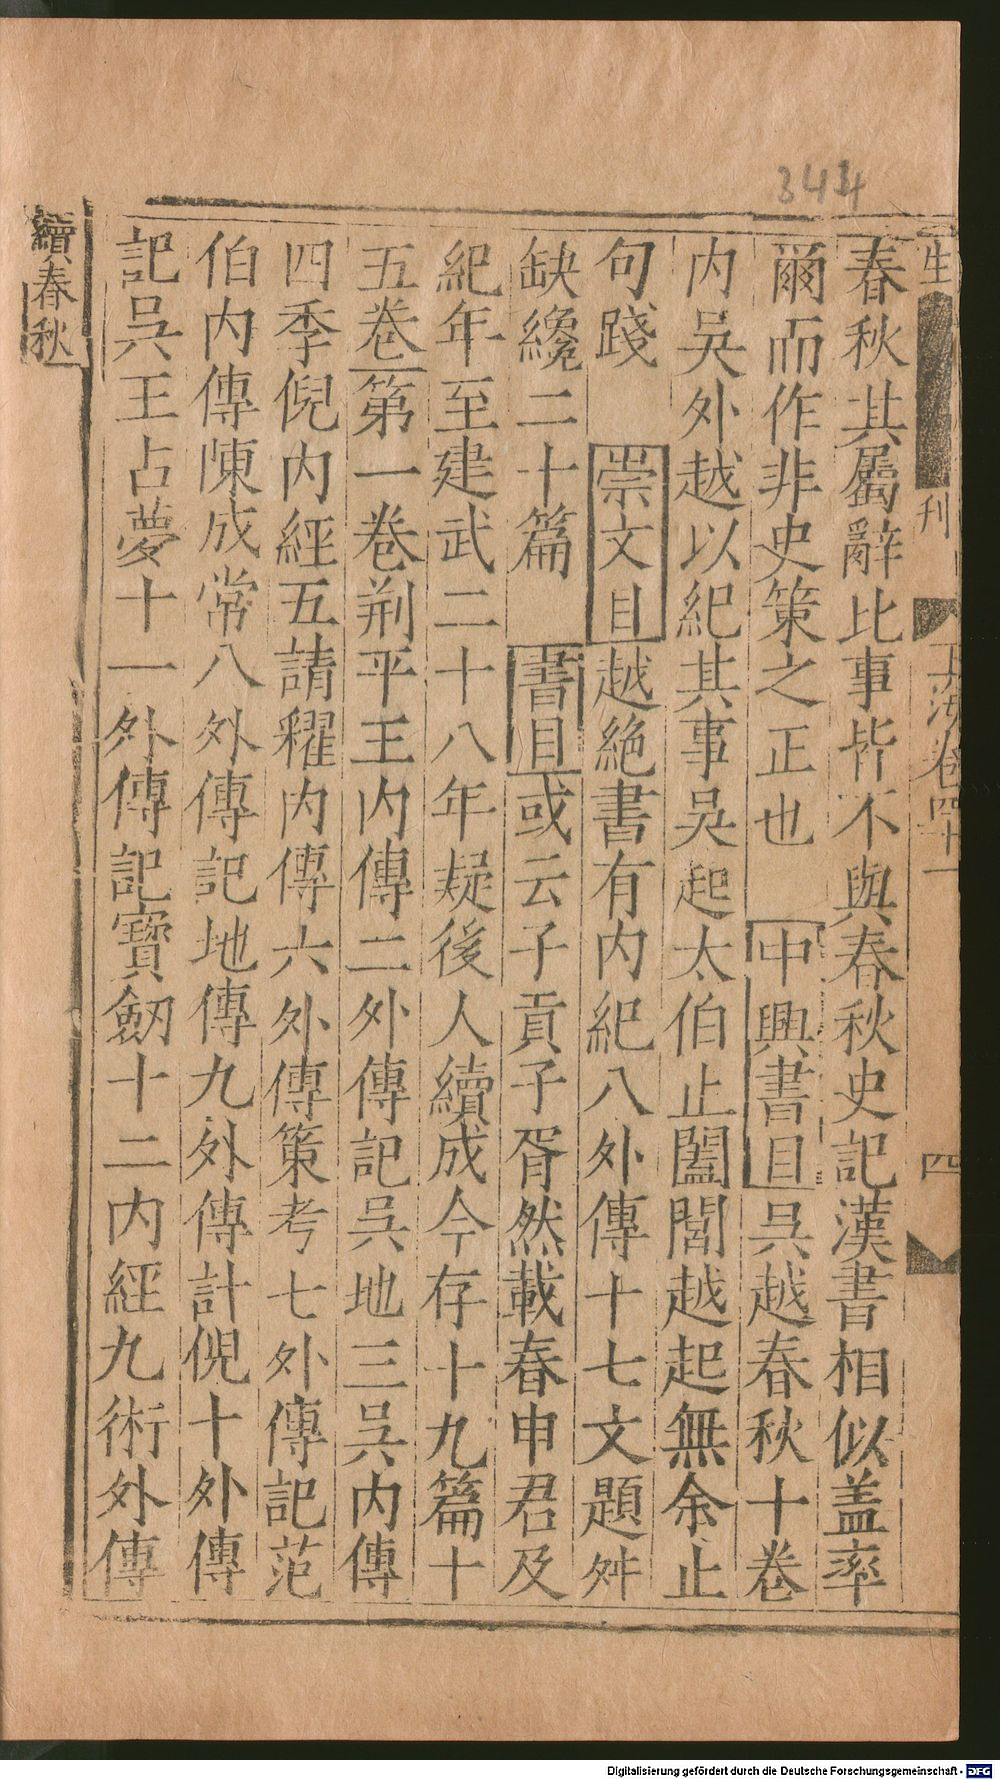 344
生
刊
玉海卷四十一
四
春秋其屬辭比事皆不與春秋史記漢書相似盖率
爾而作非史策之正也 中興書目吳越春秋十卷
内吳外越以紀其事吳起太伯止闔閭越起無余止
句踐 崇文目越絶書有内紀八外傳十七文題舛
缺纔二十篇 書目或云子貢子胥然載春申君及
紀年至建武二十八年疑後人續成今存十九篇十
五卷第一卷荆平王内傳二外傳記吳地三吳内傳
四季倪内經五請糴内傳六外傳策考七外傳記范
伯内傳陳成常八外傳記地傳九外傳計倪十外傳
記吳王占夢十一外傳記寶劒十二内經九術外傳
續春秋
Digitalisierung gefördert durch die Deutsche Forschungsgemeinschaft - DFG